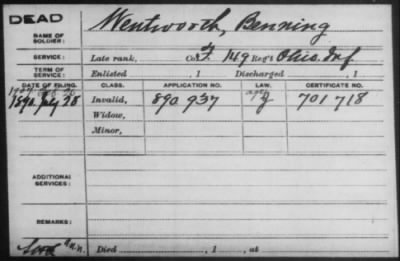 DEAD
NAME OF SOLDIER: Wentworth, Benning
SERVICE: Late rank, Co. F, 149 Reg't Ohio Inf
TERM OF SERVICE: Enlisted , 1 Discharged , 1
DATE OF FILING. CLASS. APPLICATION NO. LAW. CERTIFICATE NO.
1890 July 28 Invalid, 890.937 701718
Widow,
Minor,
ADDITIONAL SERVICES:
REMARKS:
Died , 1 , at